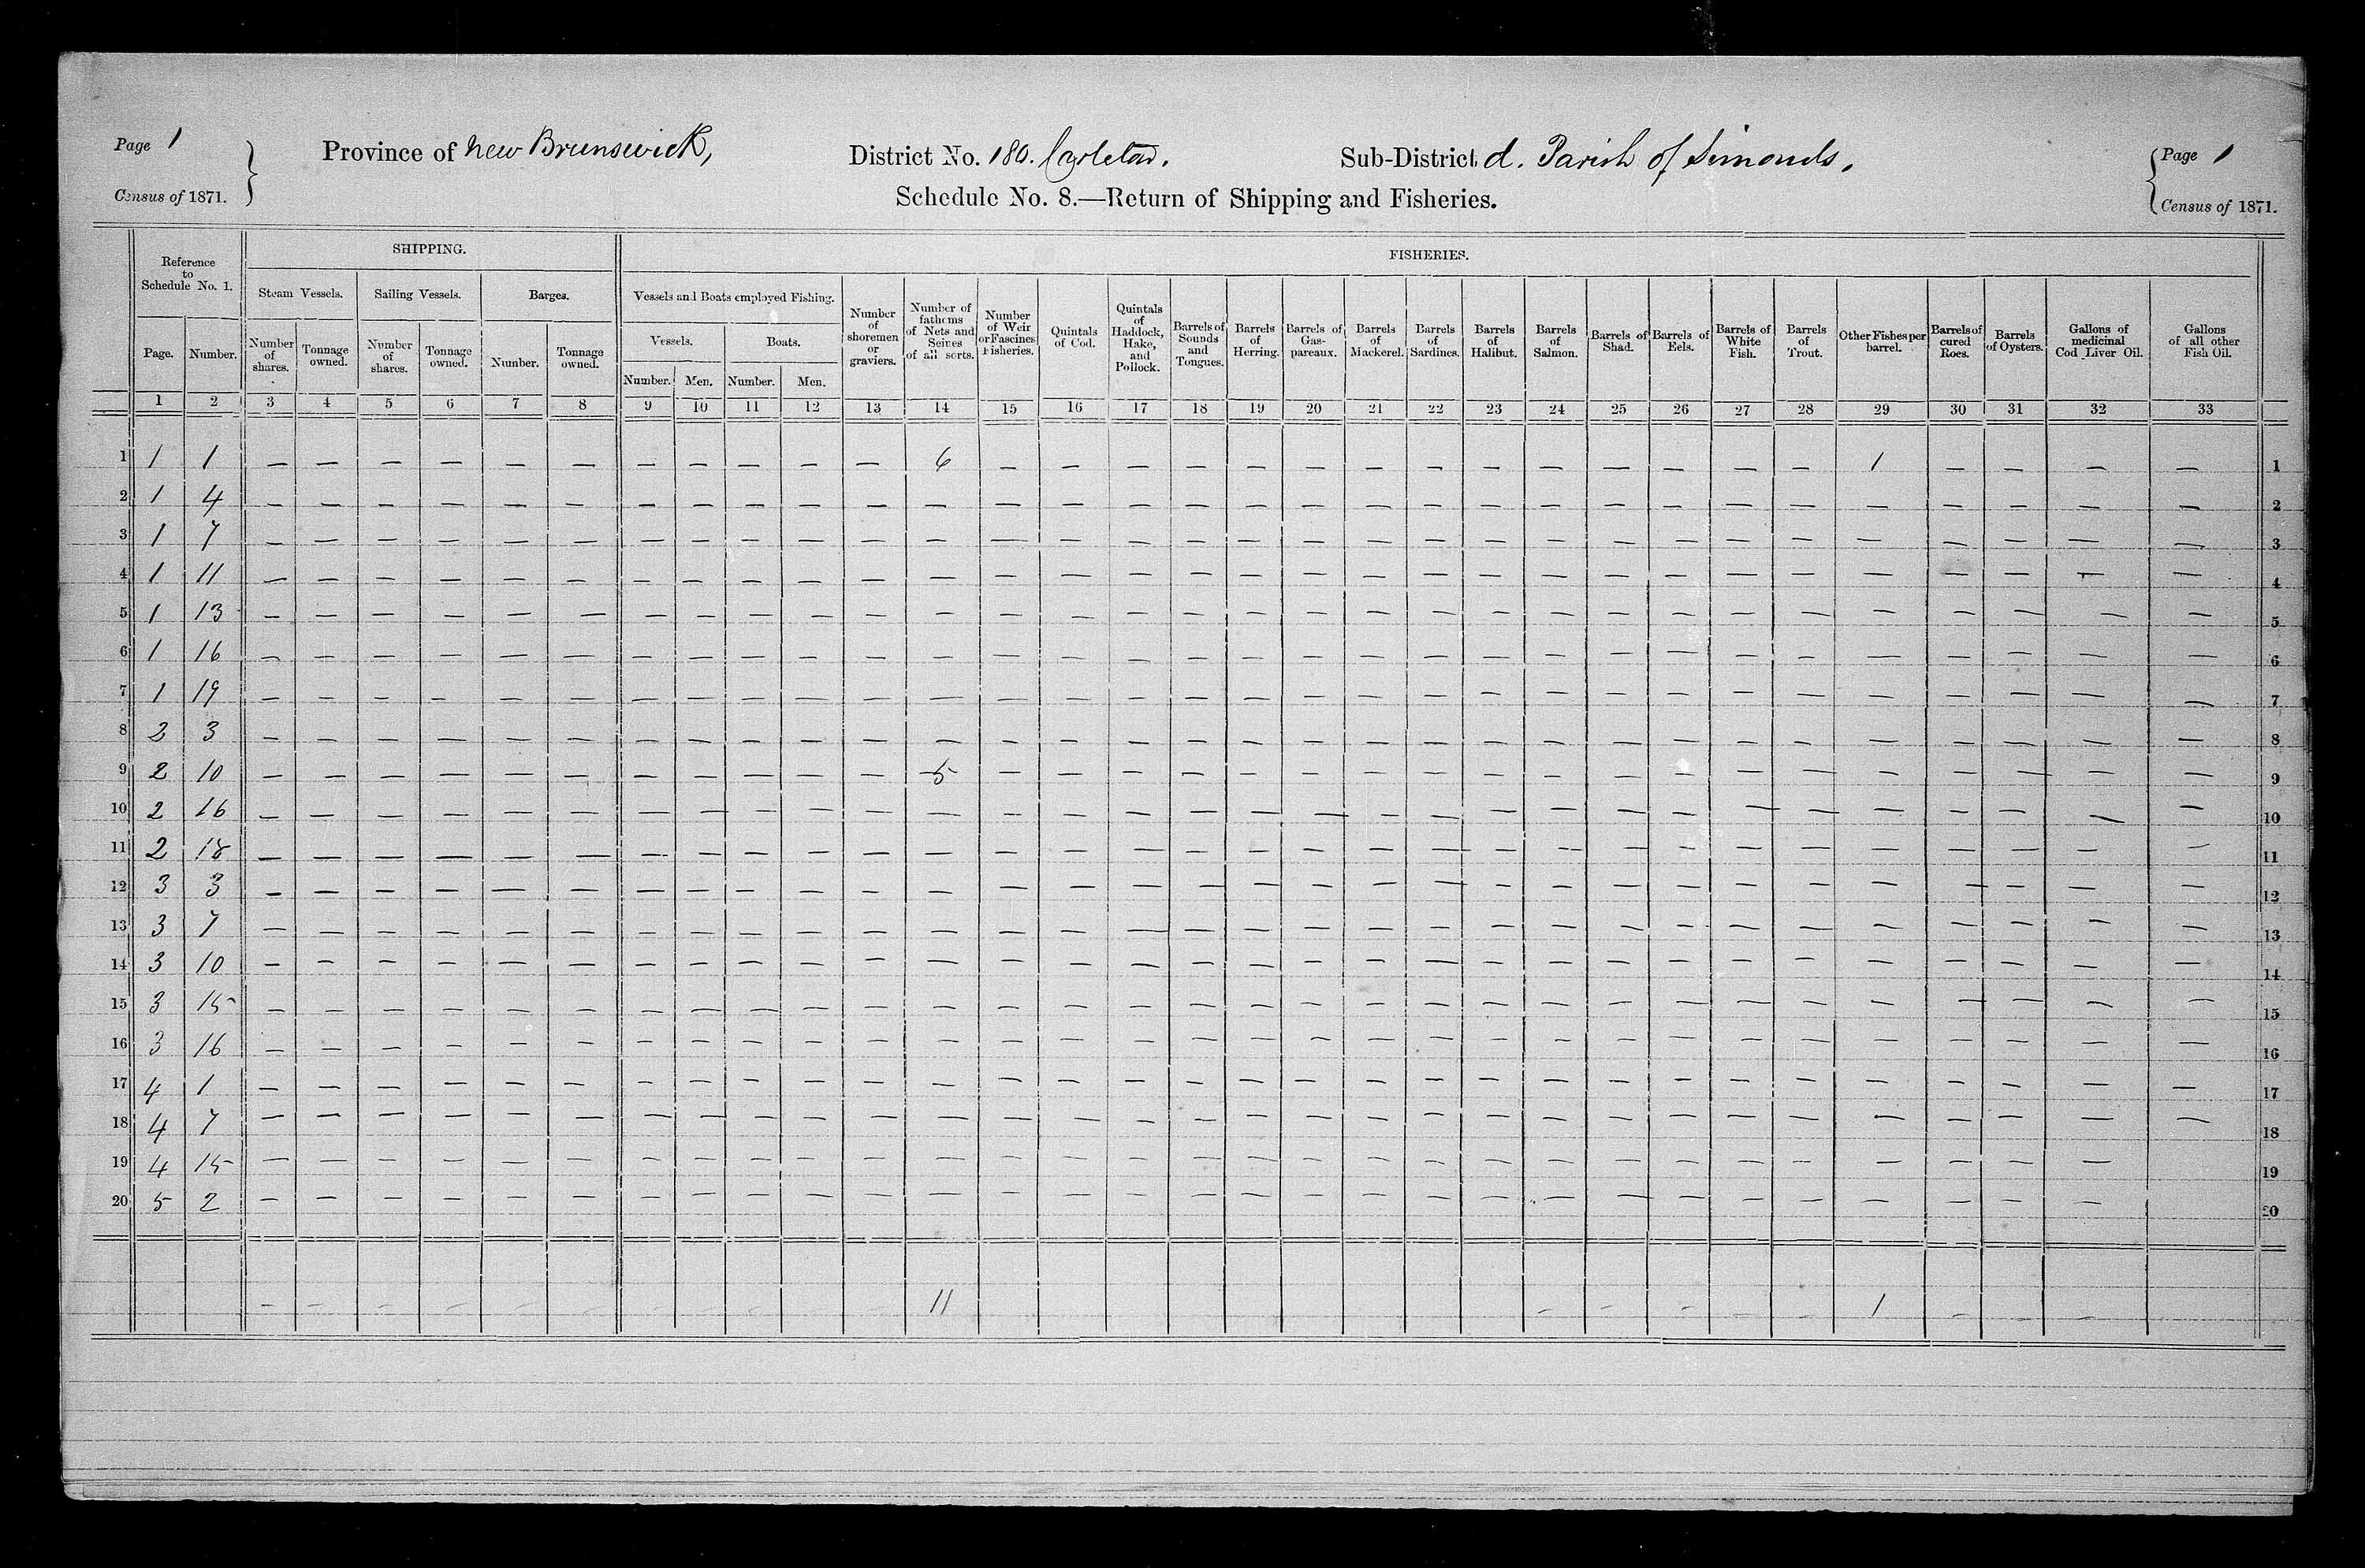 Page 1
Census of 1871.
Province of New Brunswick,
District No. 180. Carleton.
Sub-District d. Parish of Simonds.
Page 1
Census of 1871.
Schedule No. 8.—Return of Shipping and Fisheries.
Reference to Schedule No. 1.
SHIPPING.
FISHERIES.
Steam Vessels.
Sailing Vessels.
Barges.
Vessels and Boats employed Fishing.
Vessels.
Boats.
Page.
Number.
Number of shares.
Tonnage owned.
Number of shares.
Tonnage owned.
Number.
Tonnage owned.
Number.
Men.
Number.
Men.
Number of shoremen or graviers.
Number of fathoms of Nets and Seines of all sorts.
Number of Weir or Fascines Fisheries.
Quintals of Cod.
Quintals of Haddock, Hake, and Pollock.
Barrels of Sounds and Tongues.
Barrels of Herring.
Barrels of Gas-pareaux.
Barrels of Mackerel.
Barrels of Sardines.
Barrels of Halibut.
Barrels of Salmon.
Barrels of Shad.
Barrels of Eels.
Barrels of White Fish.
Barrels of Trout.
Other Fishes per barrel.
Barrels of cured Roes.
Barrels of Oysters.
Gallons of medicinal Cod Liver Oil.
Gallons of all other Fish Oil.
1 2 3 4 5 6 7 8 9 10 11 12 13 14 15 16 17 18 19 20 21 22 23 24 25 26 27 28 29 30 31 32 33
1 1 1 — — — — — — — — — — — 6 — — — — — — — — — — — — — — 1 — — — — 1
2 1 4 — — — — — — — — — — — — — — — — — — — — — — — — — — — — — — — 2
3 1 7 — — — — — — — — — — — — — — — — — — — — — — — — — — — — — — — 3
4 1 11 — — — — — — — — — — — — — — — — — — — — — — — — — — — — — — — 4
5 1 13 — — — — — — — — — — — — — — — — — — — — — — — — — — — — — — — 5
6 1 16 — — — — — — — — — — — — — — — — — — — — — — — — — — — — — — — 6
7 1 19 — — — — — — — — — — — — — — — — — — — — — — — — — — — — — — — 7
8 2 3 — — — — — — — — — — — — — — — — — — — — — — — — — — — — — — — 8
9 2 10 — — — — — — — — — — — 5 — — — — — — — — — — — — — — — — — — — 9
10 2 16 — — — — — — — — — — — — — — — — — — — — — — — — — — — — — — — 10
11 2 18 — — — — — — — — — — — — — — — — — — — — — — — — — — — — — — — 11
12 3 3 — — — — — — — — — — — — — — — — — — — — — — — — — — — — — — — 12
13 3 7 — — — — — — — — — — — — — — — — — — — — — — — — — — — — — — — 13
14 3 10 — — — — — — — — — — — — — — — — — — — — — — — — — — — — — — — 14
15 3 15 — — — — — — — — — — — — — — — — — — — — — — — — — — — — — — — 15
16 3 16 — — — — — — — — — — — — — — — — — — — — — — — — — — — — — — — 16
17 4 1 — — — — — — — — — — — — — — — — — — — — — — — — — — — — — — — 17
18 4 7 — — — — — — — — — — — — — — — — — — — — — — — — — — — — — — — 18
19 4 15 — — — — — — — — — — — — — — — — — — — — — — — — — — — — — — 19
20 5 2 — — — — — — — — — — — — — — — — — — — — — — — — — — — — — — 20
11 1